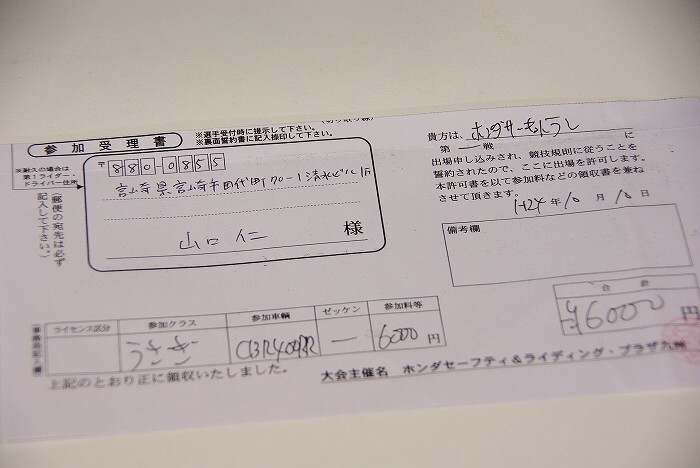 参加受理書
※選手受付時に提示して下さい。
※裏面誓約書に記入捺印して下さい。
※耐久の場合は
第1ライダー・
ドライバー住所
(郵便の宛先は必ず
記入して下さい。)
〒880-0855
宮崎県宮崎市田代町70-1清水ビル1F
山口仁 様
貴方は、ホンダサーキットトライ に
第 一 戦
出場申し込みされ、競技規則に従うことを
誓約されたので、ここに出場を許可します。
本許可書を以て参加料などの領収書を兼ね
させて頂きます。
H24年10月10日
備考欄
ライセンス区分 参加クラス 参加車輌 ゼッケン 参加料等
うさぎ CBR400RR — 6000円
合 計
¥6000円
上記のとおり正に領収いたしました。
大会主催名 ホンダセーフティ&ライディング・プラザ九州